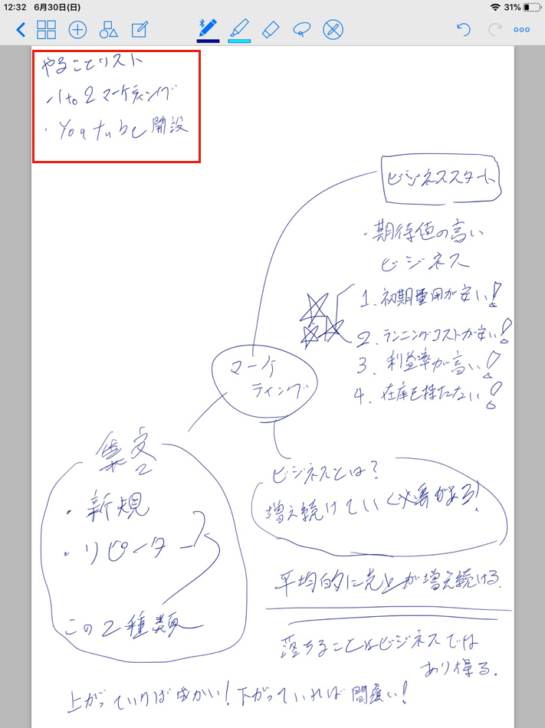 12:32 6月30日(日)
31%
やることリスト
・1to2マーケティング
・YouTube開設
ビジネススタート
・期待値の高い
ビジネス
1.初期費用が安い!
2.ランニングコストが安い!
3.利益率が高い!
4.在庫を持たない!
マーケ
ティング
集客
・新規
・リピーター
この2種類
ビジネスとは?
増え続けていく必要がある!
平均的に売上が増え続ける.
落ちることはビジネスでは
あり得る.
上がっていれば せかい!下がっていれば 間違い!